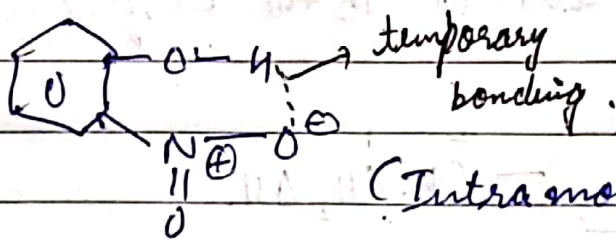 O - H
temporary
bonding.
N ⊕ O ⊖
O
(Intra mo